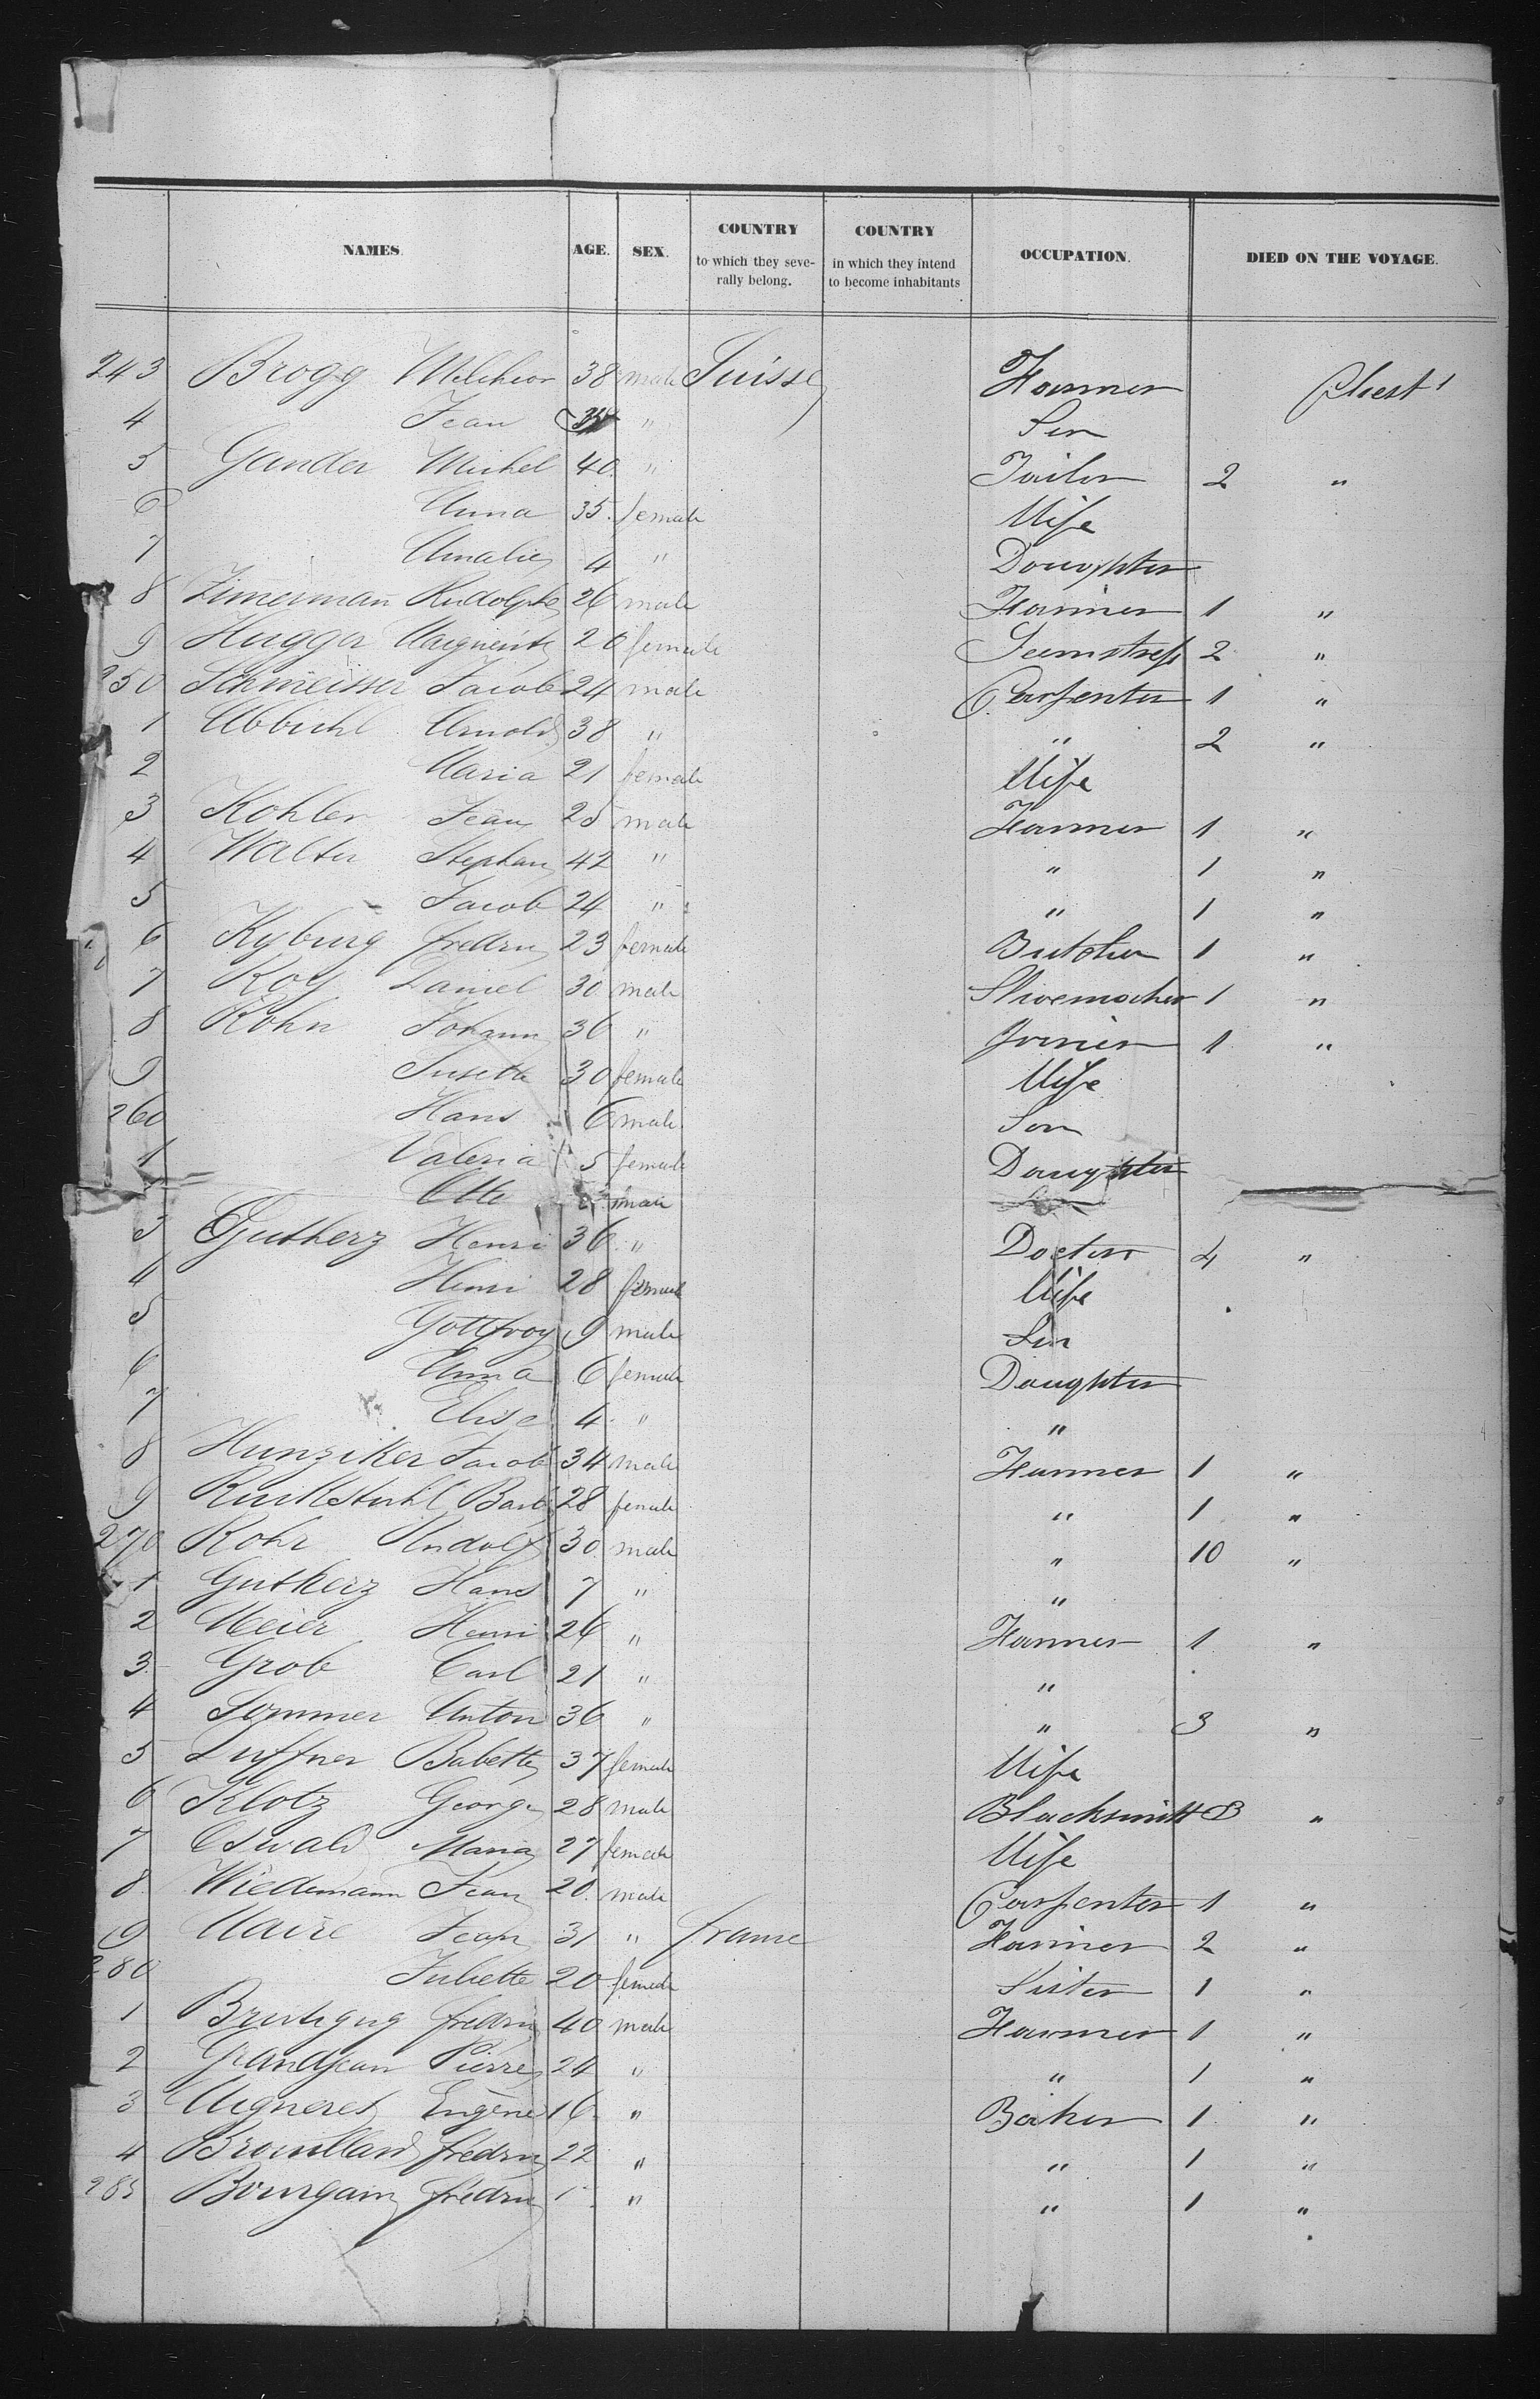 NAMES. AGE. SEX. COUNTRY to which they severally belong. COUNTRY in which they intend to become inhabitants OCCUPATION. DIED ON THE VOYAGE.
243 Brogg Melchior 38 male Suisse Farmer Chest 1
4 Jean " Son
5 Gander Michel 40 " Tailor 2 "
6 Anna 35 female Wife
7 Amalie 4 " Daughter
8 Zimerman̄ Rudolphe 26 male Farmer 1 "
9 Hugger Marguerite 20 female Seamstress 2 "
250 Schmeisser Jacob 24 male Carpenter 1 "
1 Abbuhl Arnold 38 " " 2 "
2 Maria 21 female Wife
3 Kohler Jean 25 male Farmer 1 "
4 Walter Stephan 42 " " 1 "
5 Jacob 24 " " 1 "
6 Kyburg fredric 23 female Butcher 1 "
7 Roy Daniel 30 male Shoemacher 1 "
8 Rohn Johann 36 " Joiner 1 "
9 Susette 30 female Wife
260 Hans 6 male Son
1 Valeria 5 female Daughter
Otto male Son
3 Gutherz Henri 36 " Doctor 4 "
4 Henri 28 female Wife
5 Gottfroy 9 male Son
6 Anna 6 female Daughter
7 Elise 4 " "
8 Hunziker Jacob 34 male Farmer 1 "
9 Ruckstuhl Barb 28 female " 1 "
270 Rohr Rudolf 30 male " 10 "
1 Gutherz Hans 7 " "
2 Meier Henri 26 " Farmer 1 "
3 Grob Carl 21 " "
4 Sommer Anton 36 " " 3 "
5 Luffner Babette 37 female Wife
6 Klotz George 28 male Blacksmith 3 "
7 Oswald Maria 27 female Wife
8 Wiedemann Jean 20 male Carpenter 1 "
9 Maire Jean 31 " france Farmer 2 "
280 Juliette 20 female Sister 1 "
1 fredric 40 male Farmer 1 "
2 Grandjean Pierre 24 " " 1 "
3 Eugène 16 " Baker 1 "
4 Brouillard fredric 22 " " 1 "
285 Bourgain fredric 1 " " 1 "